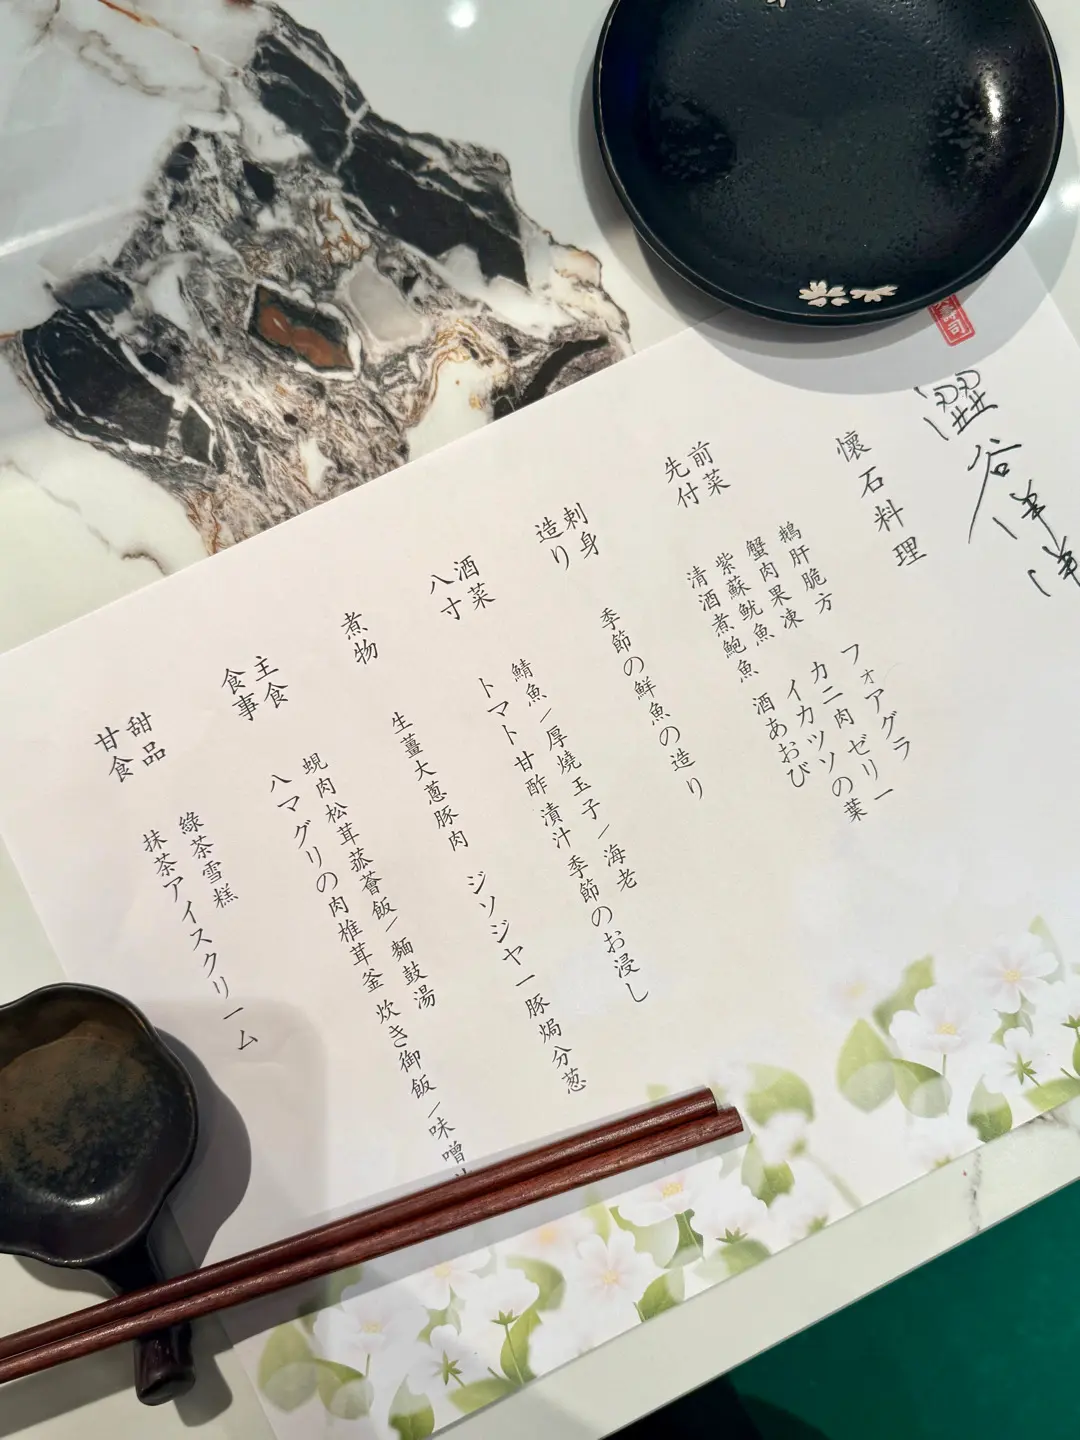 壽司
澀谷洋洋
懷石料理
前菜
先付
鵝肝脆方 フォアグラ
蟹肉果凍 カニ肉ゼリー
紫蘇魷魚 イカツソの葉
清酒煮鮑魚 酒あおび
刺身
造り
季節の鮮魚の造り
酒菜
八寸
鯖魚/厚燒玉子/海老
トマト甘酢漬汁季節のお浸し
煮物
生薑大蔥豚肉 ジソジャー豚焗分葱
主食
食事
蜆肉松茸菰薈飯/麵鼓湯
ハマグリの肉椎茸釜炊き御飯/味噌
甜品
甘食
綠茶雪糕
抹茶アイスクリーム